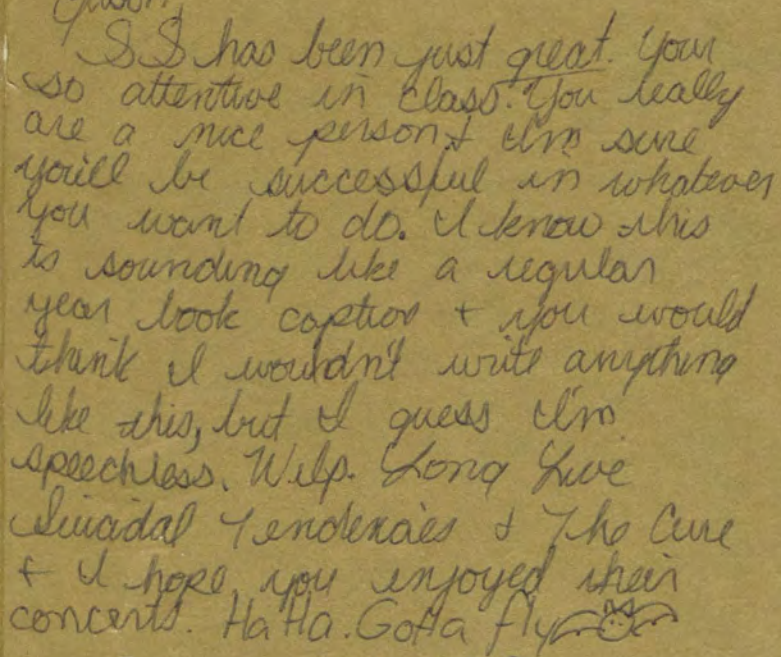 SS has been just great. Your
so attentive in class. You really
are a nice person & I'm sure
you'll be successful in whatever
you want to do. I know this
is sounding like a regular
year book caption & you would
think I wouldn't write anything
like this, but I guess I'm
speechless. Welp. Long Live
Suicidal Tendencies & The Cure
& I hope you enjoyed their
concerts. Ha Ha. Gotta fly